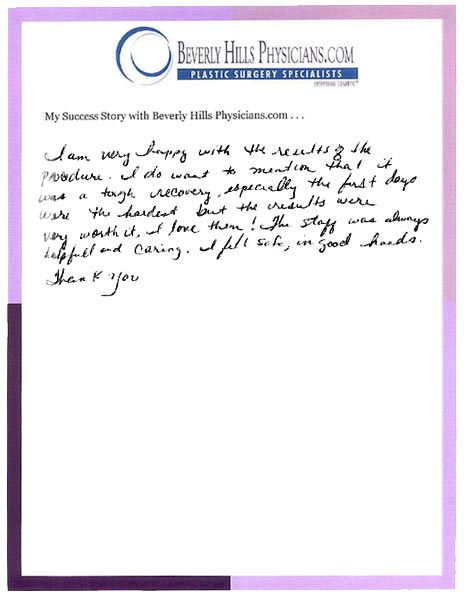 BEVERLY HILLS PHYSICIANS.COM
PLASTIC SURGERY SPECIALISTS
My Success Story with Beverly Hills Physicians.com . . .
I am very happy with the results of the
procedure. I do want to mention that it
was a tough recovery, especially the first days
were the hardest but the results were
very worth it. I love them! The staff was always
helpfull and caring. I felt safe, in good hands.
Thank You